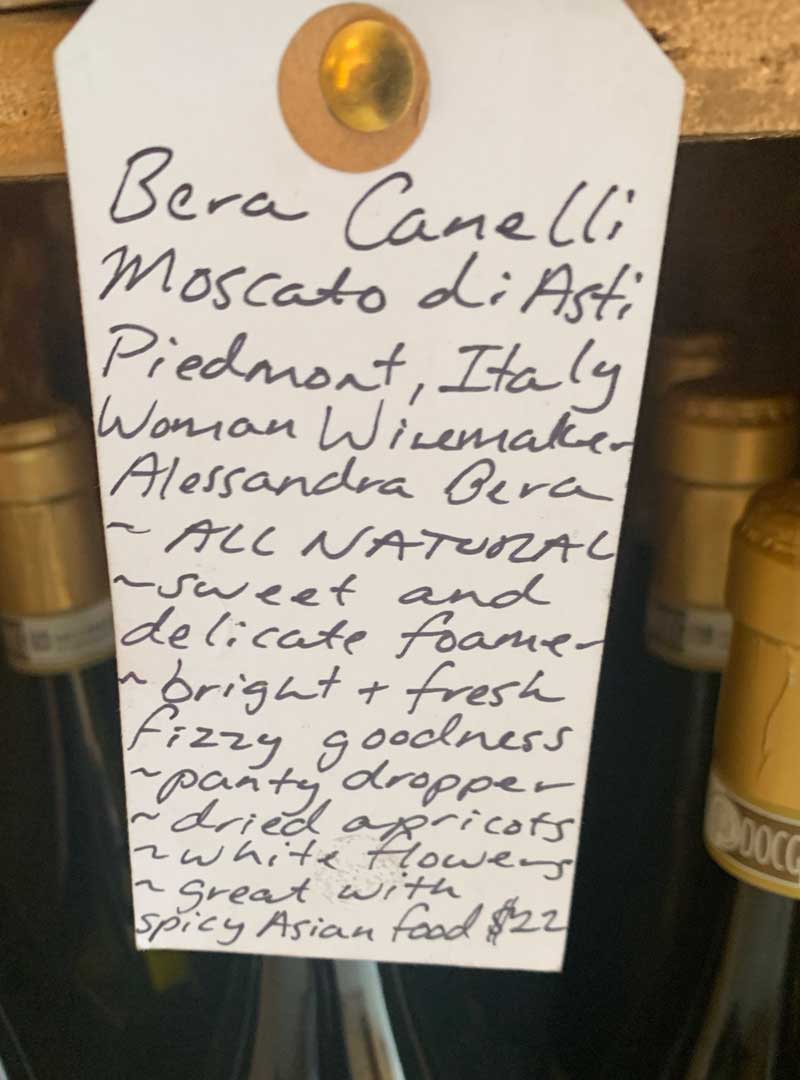 Bera Canelli
Moscato di Asti
Piedmont, Italy
Woman Winemaker
Alessandra Bera
~ ALL NATURAL
~sweet and
delicate foamer
~bright + fresh
fizzy goodness
~panty dropper
~dried apricots
~white flowers
~great with
spicy Asian food $22
DOCG